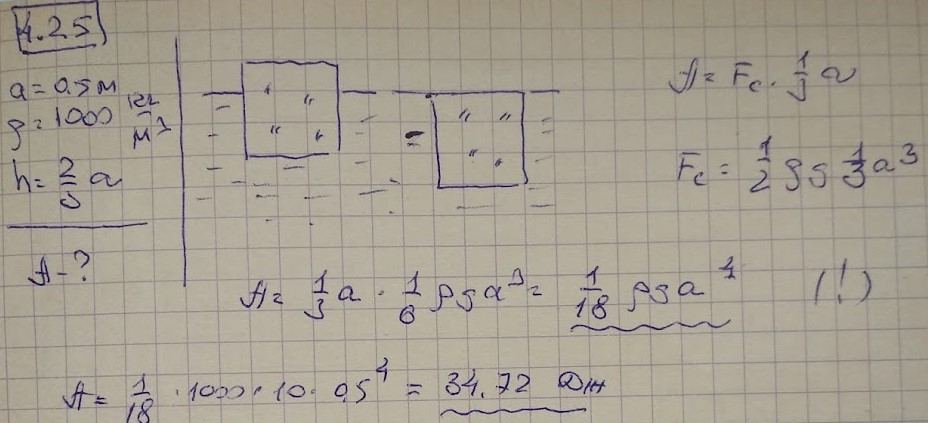 4.25
a = 0.5 м
ρ = 1000 кг/м³
h = 2/3 a
A - ?
A = Fc · 1/3 a
Fc = 1/2 ρg 1/3 a³
A = 1/3 a · 1/6 ρga³ = 1/18 ρga⁴ (!)
A = 1/18 · 1000 · 10 · 0.5⁴ = 34.72 Дж